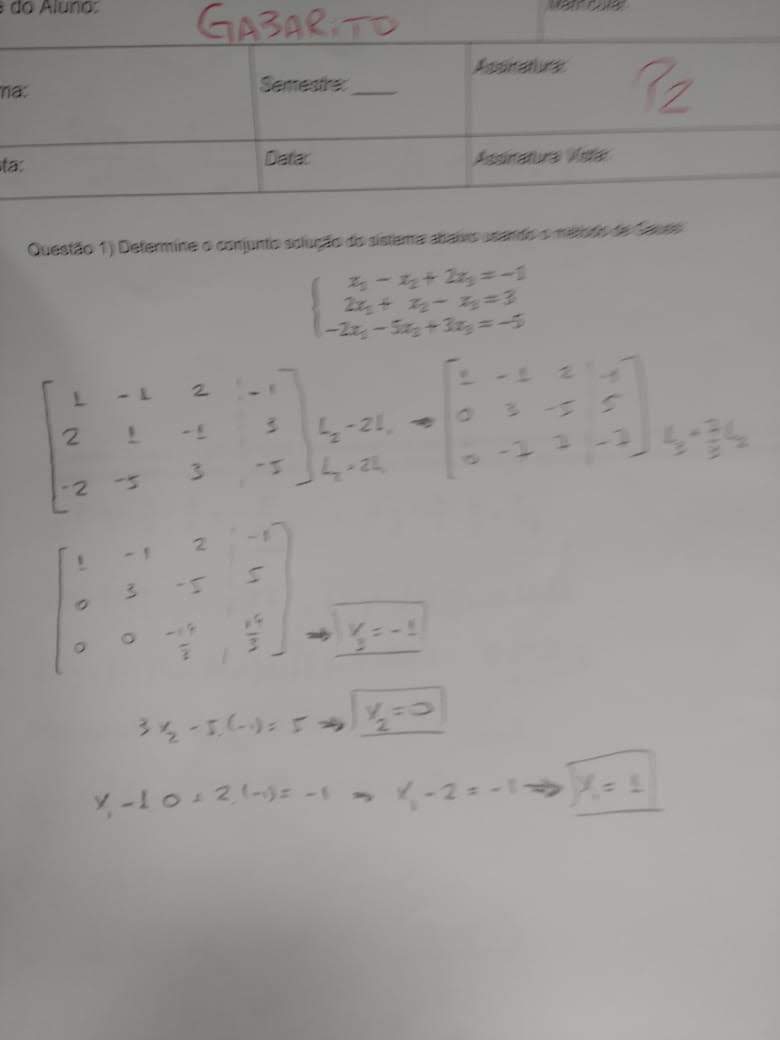 do Aluno:
GABARITO
Matrícula:
ma:
Semestre: ____
Assinatura:
P2
ta:
Data:
Assinatura Vista:
Questão 1) Determine o conjunto solução do sistema abaixo usando o método de Gauss:
x₁ − x₂ + 2x₃ = −1
2x₁ + x₂ − x₃ = 3
−2x₁ − 5x₂ + 3x₃ = −5
1 -1 2 -1
2 1 -1 3 L₂-2L₁ →
-2 -5 3 -5
1 -1 2 -1
0 3 -5 5
0 -7 7 -7
1 -1 2 -1
0 3 -5 5
0 0 -14/3 14/3 → x₃ = -1
3x₂ - 5.(-1) = 5 → x₂ = 0
x₁ - 1.0 + 2.(-1) = -1 → x₁ - 2 = -1 → x₁ = 1